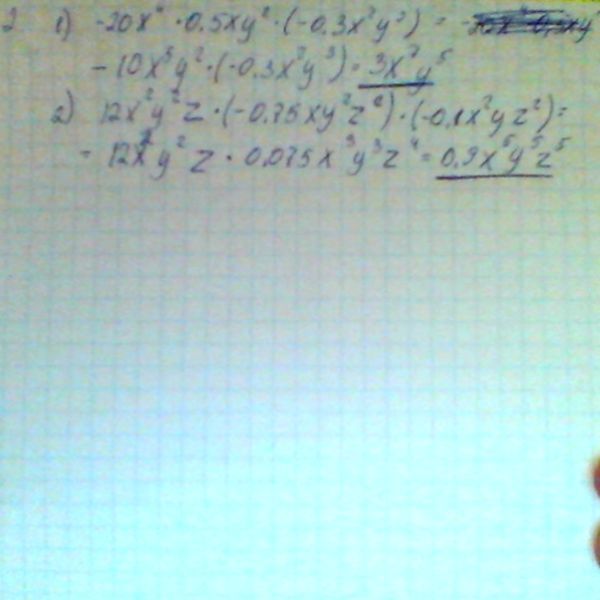 2 1) -20x⁴ · 0.5xy² · (-0.3x²y³) =
-10x⁵y² · (-0.3x²y³) = 3x⁷y⁵
2) 12x²y²z · (-0.75xy²z²) · (-0.1x²yz²) =
= 12x²y²z · 0.075x³y³z⁴ = 0.9x⁵y⁵z⁵